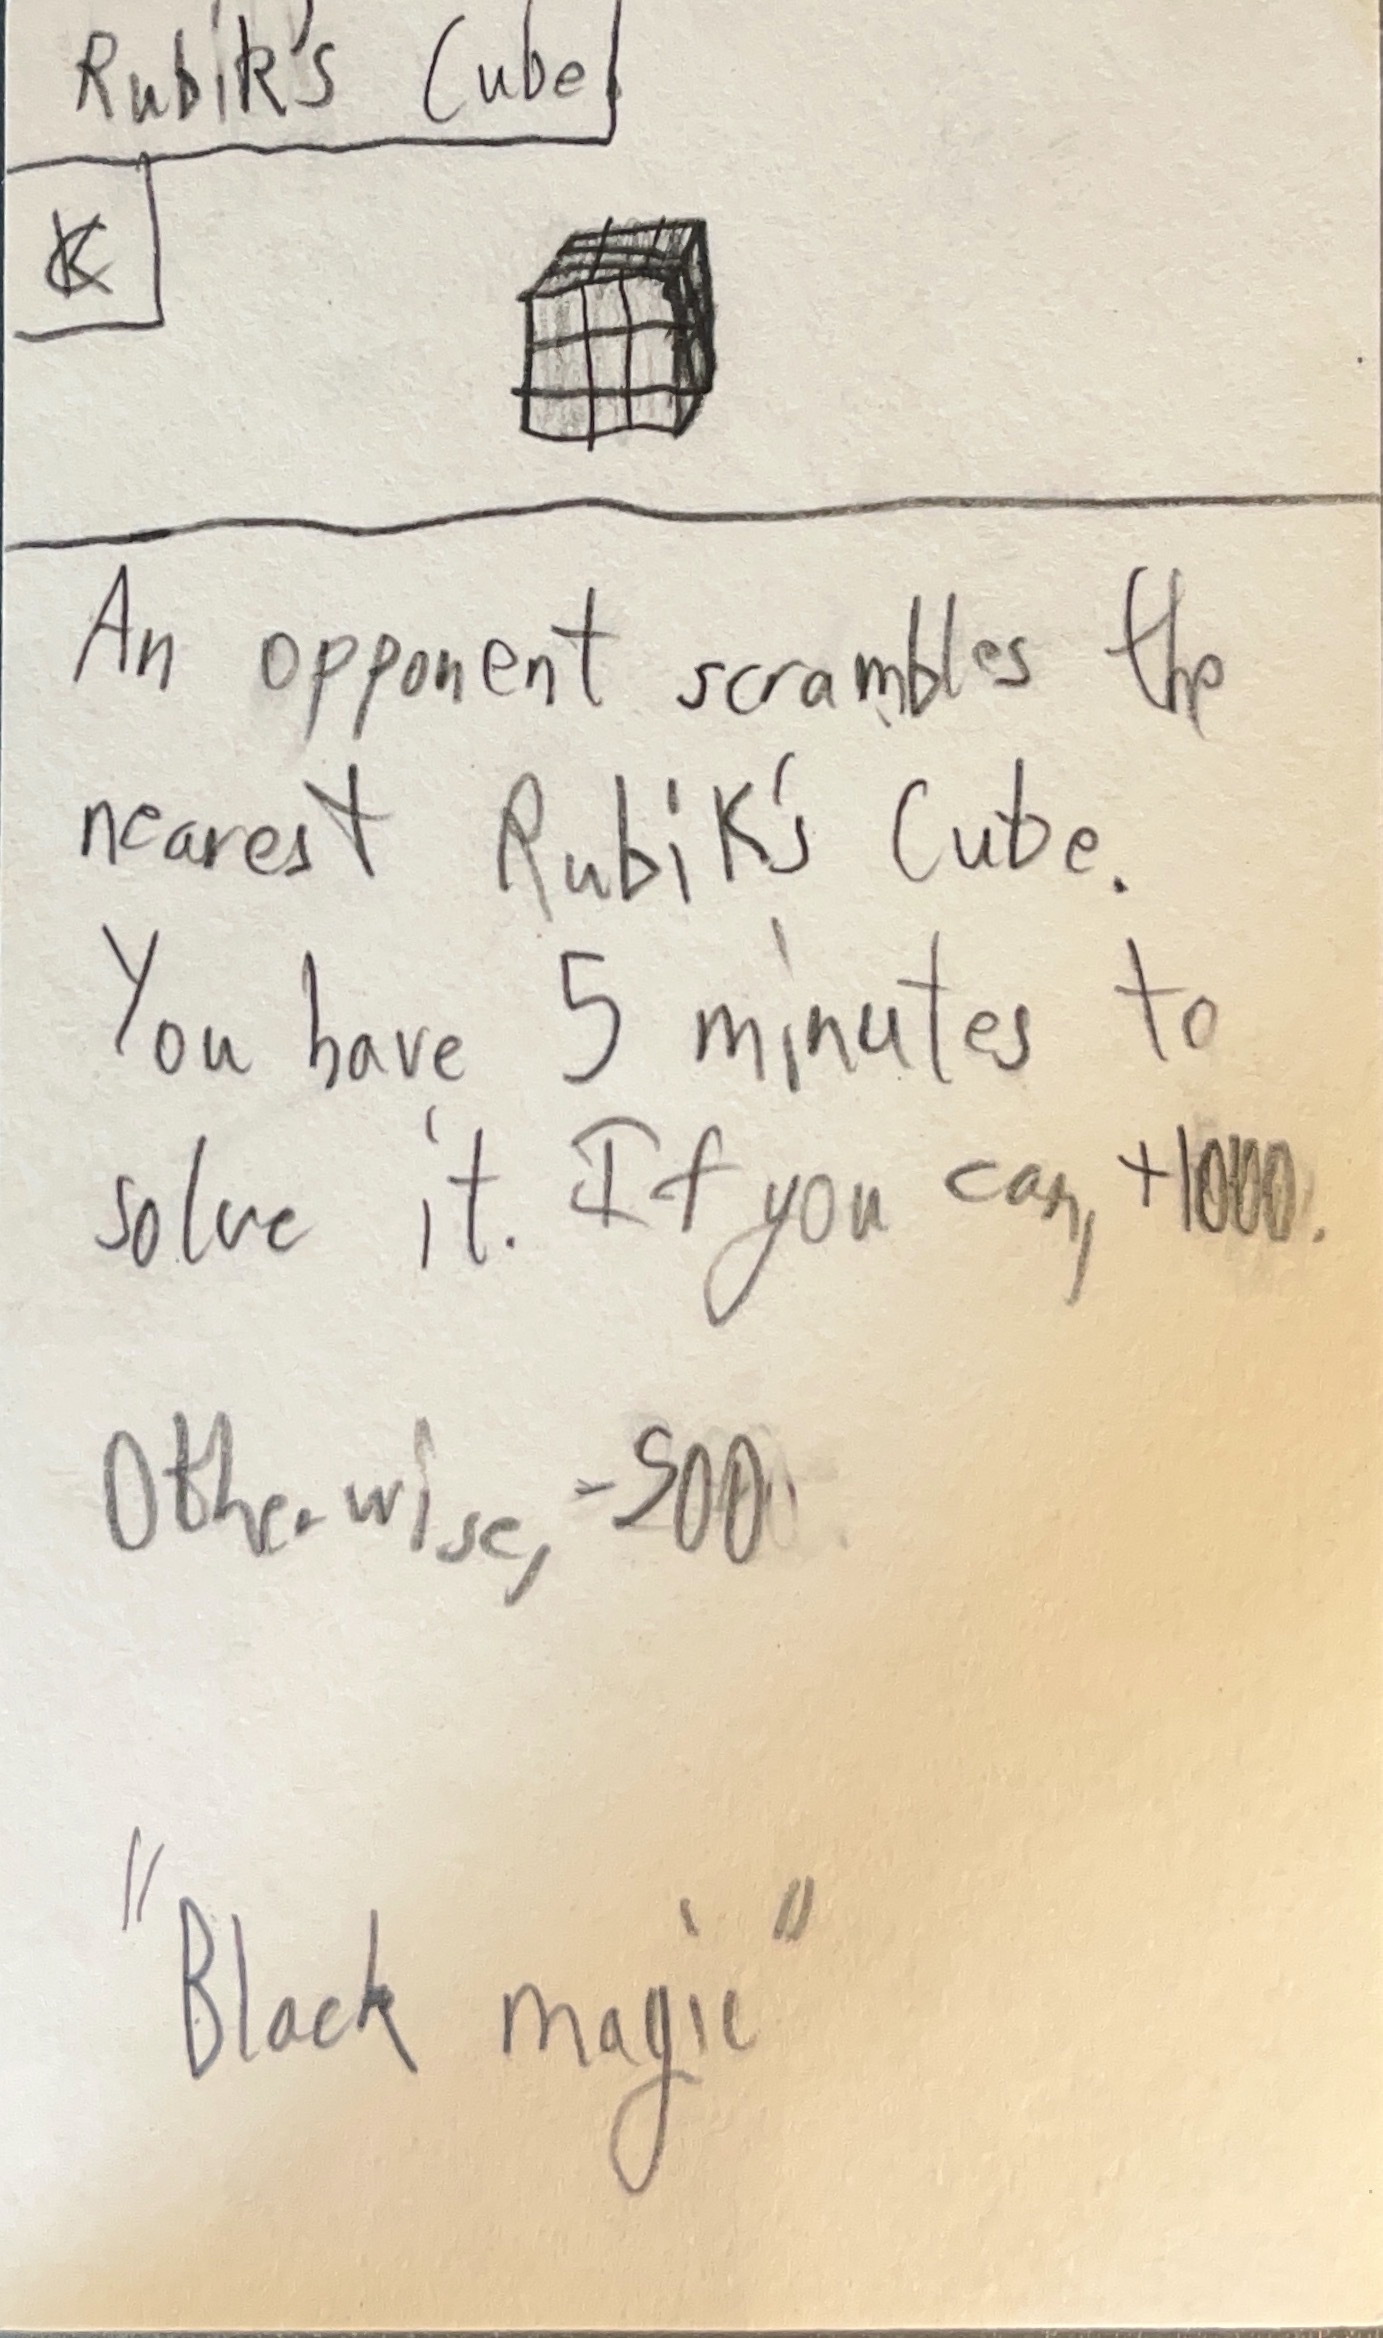 Rubik's Cube
An opponent scrambles the
nearest Rubik's Cube.
You have 5 minutes to
solve it. If you can, +1000.
Otherwise, -500
"Black magic"